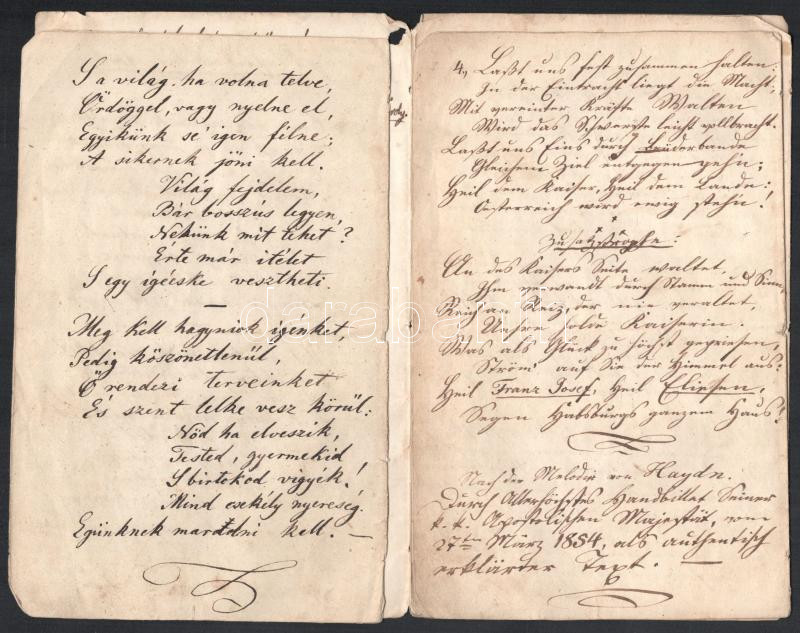 S a világ, ha volna telve,
Ördöggel, vagy nyelne el,
Egyikünk se' igen félne;
A sikernek jőni kell.
Világ fejdelem,
Bár bosszús legyen,
Nekünk mit tehet?
Érte már itélet
S egy igécske vesztheti.
—
Meg kell hagyniok igénket,
Pedig köszönettenül,
Ő rendezi terveinket
És szent lelke vesz körül:
Nőd ha elveszik,
Tested, gyermekid
S birtokod vigyék!
Mind csekély nyereség.
Egünknek maradni kell. —
4., Laßt uns fest zusammen halten:
In der Eintracht liegt die Macht;
Mit vereinter Kräfte Walten
Wird das Schwerste leicht vollbracht.
Laßt uns Eins durch Bruderbande
Gleichem Ziel entgegen gehn;
Heil dem Kaiser, Heil dem Lande:
Oesterreich wird ewig stehn!
Zusatzstrophe:
An des Kaisers Seite waltet,
Ihm verwandt durch Stamm und Sinn,
Reich an Reiz, der nie veraltet,
Unsre holde Kaiserin.
Was als Glück zu höchst gepriesen,
Ström' auf Sie der Himmel aus:
Heil Franz Josef, Heil Eliesen,
Segen Habsburgs ganzem Haus!
Nach der Melodie von Haydn.
Durch Allerhöchstes Handbillet Seiner
k. k. Apostolischen Majestät, vom
27ten März 1854, als authentisch
erklärter Text. —
darabanth